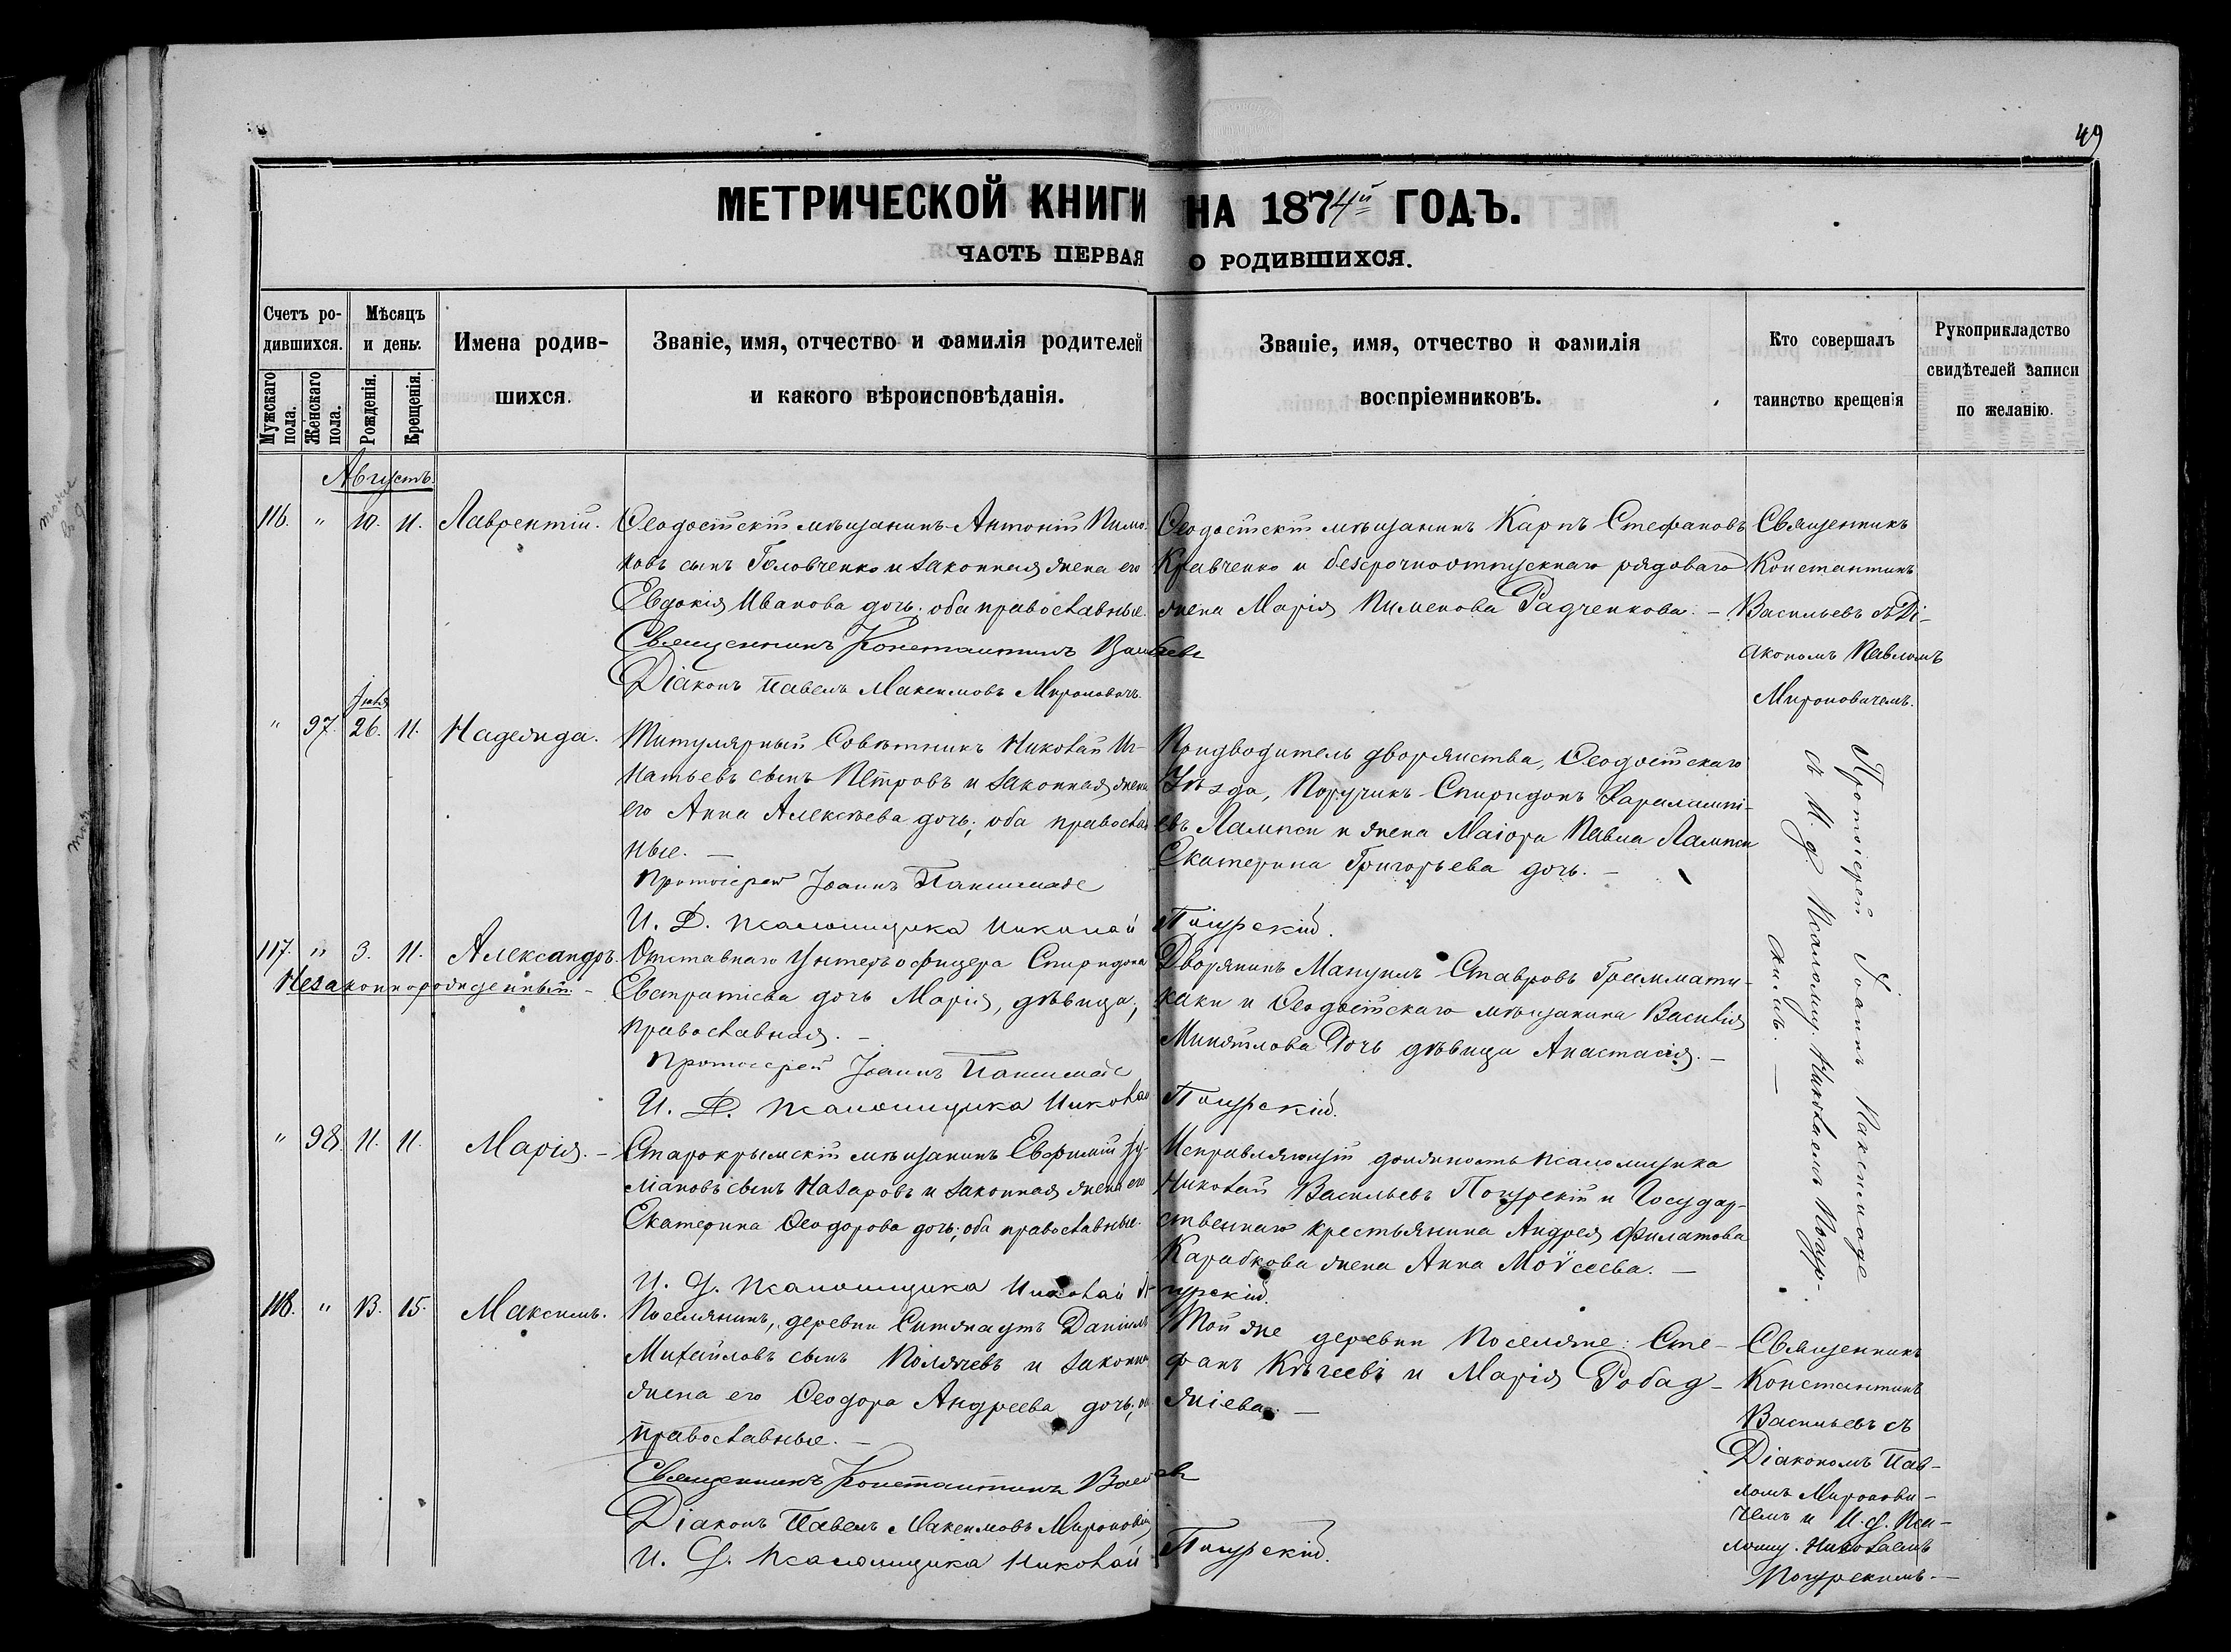 49
МЕТРИЧЕСКОЙ КНИГИ НА 1874й ГОДЪ.
ЧАСТЬ ПЕРВАЯ О РОДИВШИХСЯ.
Счетъ ро-
дившихся.
Мужскаго
пола.
Женскаго
пола.
Мѣсяцъ
и день.
Рожденія.
Крещенія.
Имена родив-
шихся.
Званіе, имя, отчество и фамилія родителей
и какого вѣроисповѣданія.
Званіе, имя, отчество и фамилія
воспріемниковъ.
Кто совершалъ
таинство крещенія
Рукоприкладство
свидѣтелей записи
по желанію.
Августъ.
116. " 10. 11. Лаврентій.
Ѳеодосійскій мѣщанинъ Антоній Пиме-
новъ сынъ Головченко и законная жена его
Евдокія Иванова дочь; оба православные.
Священникъ Константинъ Васильевъ
Діаконъ Павелъ Максимовъ Мироновичъ.
Ѳеодосійскій мѣщанинъ Карпъ Стефановъ
Кравченко и безсрочноотпускнаго рядоваго
жена Марія Пименова Радченкова. —
Священникъ
Константинъ
Васильевъ съ Ді-
акономъ Павломъ
Мироновичемъ.
Іюля
" 97. 26. 11. Надежда.
Титулярный Совѣтникъ Николай Иг-
натьевъ сынъ Петровъ и законная жена
его Анна Алексѣева дочь; оба православ
ные. —
Протоіерей Іоаннъ Паксимаде
И. Д. псаломщика Николай Погурскій.
Предводитель дворянства, Ѳеодосійскаго
Уѣзда, Поручикъ Спиридонъ Харалампі-
евъ Лампси и жена Маіора Павла Лампси
Екатерина Григорьева дочь. —
Протоіерей Іоаннъ Паксимаде
съ И. д. Псаломщ. Николаемъ Погур-
скимъ. —
117. " 3. 11. Александръ.
Незаконнорожденный. —
Отставнаго Унтеръ офицера Спиридона
Евстратіева дочь Марія, дѣвица;
православная. —
Протоіерей Іоаннъ Паксимаде
И. Д. псаломщика Николай Погурскій.
Дворянинъ Мануилъ Ставровъ Грammати-
каки и Ѳеодосійскаго мѣщанина Василія
Дочь дѣвица Анастасія. —
" 98. 11. 11. Марія. —
Старокрымскій мѣщанинъ Евфимій
сынъ Назаровъ и законная жена его
Екатерина Ѳеодорова дочь; оба православные.
И. д. псаломщика Николай Погурскій.
Исправляющій должность псаломщика
Николай Васильевъ Погурскій и Государ-
ственнаго крестьянина Андрея Филатова
Карабкова жена Анна Моѵсеева. —
118. " 13. 15. Максимъ.
Поселянинъ, деревни Даніилъ
Михайловъ сынъ и законная
жена его Ѳеодора Андреева дочь; оба
православные. —
Священникъ Константинъ Васильевъ
Діаконъ Павелъ Максимовъ Мироновичъ
И. д. псаломщика Николай Погурскій.
Той же деревни поселяне: Сте-
фанъ и Марія Робад-
жіева. —
Священникъ
Константинъ
Васильевъ съ
Діакономъ Пав-
ломъ Миронови-
чемъ и И. д. Пса-
ломщ. Николаемъ
Погурскимъ. —